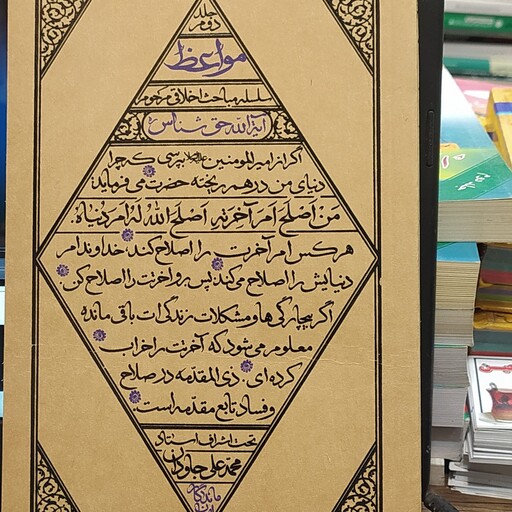 جلد دوم
مواعظ
سلسله مباحث اخلاقی مرحوم
آیة الله حق شناس ره
اگر از امیرالمومنین علیه‌السلام بپرسی که چرا
دنیای من در هم ریخته حضرت می فرماید:
مَن اَصلَحَ اَمرَ آخرَتِهِ اَصلَحَ اللهُ لَهُ اَمرَ دُنیاهُ.
هر کس امر آخرت را اصلاح کند، خداوند امر
دنیایش را اصلاح می کند. پس برو آخرت را اصلاح کن.
اگر بیچارگی ها و مشکلات زندگی ات باقی مانده
معلوم می شود که آخرتت را خراب
کرده ای. ذی المقدمه در صلاح
و فساد تابع مقدمه است.
تحت اشراف استاد
محمد علی جاودان
ماندگار
جلد دوم